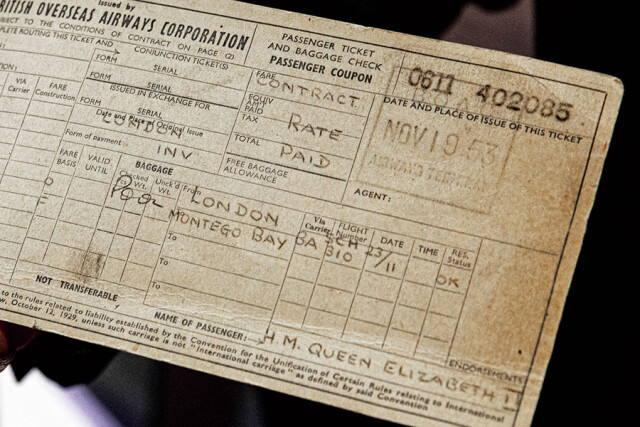 Issued by
BRITISH OVERSEAS AIRWAYS CORPORATION
SUBJECT TO THE CONDITIONS OF CONTRACT ON PAGE (2)
COMPLETE ROUTING THIS TICKET AND
CONJUNCTION TICKET(S)
FORM SERIAL
FORM SERIAL
ISSUED IN EXCHANGE FOR
FORM SERIAL
Date and Place of Original Issue
LONDON
Form of payment
INV
Via Carrier
FARE Construction
PASSENGER TICKET
AND BAGGAGE CHECK
PASSENGER COUPON
FARE
CONTRACT
EQUIV AMT PAID
TAX
RATE
TOTAL
PAID
FREE BAGGAGE ALLOWANCE
0611 402085
DATE AND PLACE OF ISSUE OF THIS TICKET
NOV 19 53
AIRWAYS TERMINAL
AGENT:
FARE BASIS
VALID UNTIL
BAGGAGE
Checked Wt.
Unck'd Wt.
From
LONDON
Via Carrier
FLIGHT Number
DATE
TIME
RES. Status
MONTEGO BAY
BA
SCH 310
23/11
OK
To
To
To
NOT TRANSFERABLE
NAME OF PASSENGER:
H.M. QUEEN ELIZABETH II
ENDORSEMENTS
to the rules related to liability established by the Convention for the Unification of Certain Rules relating to International
October 12, 1929, unless such carriage is not "International carriage" as defined by said Convention